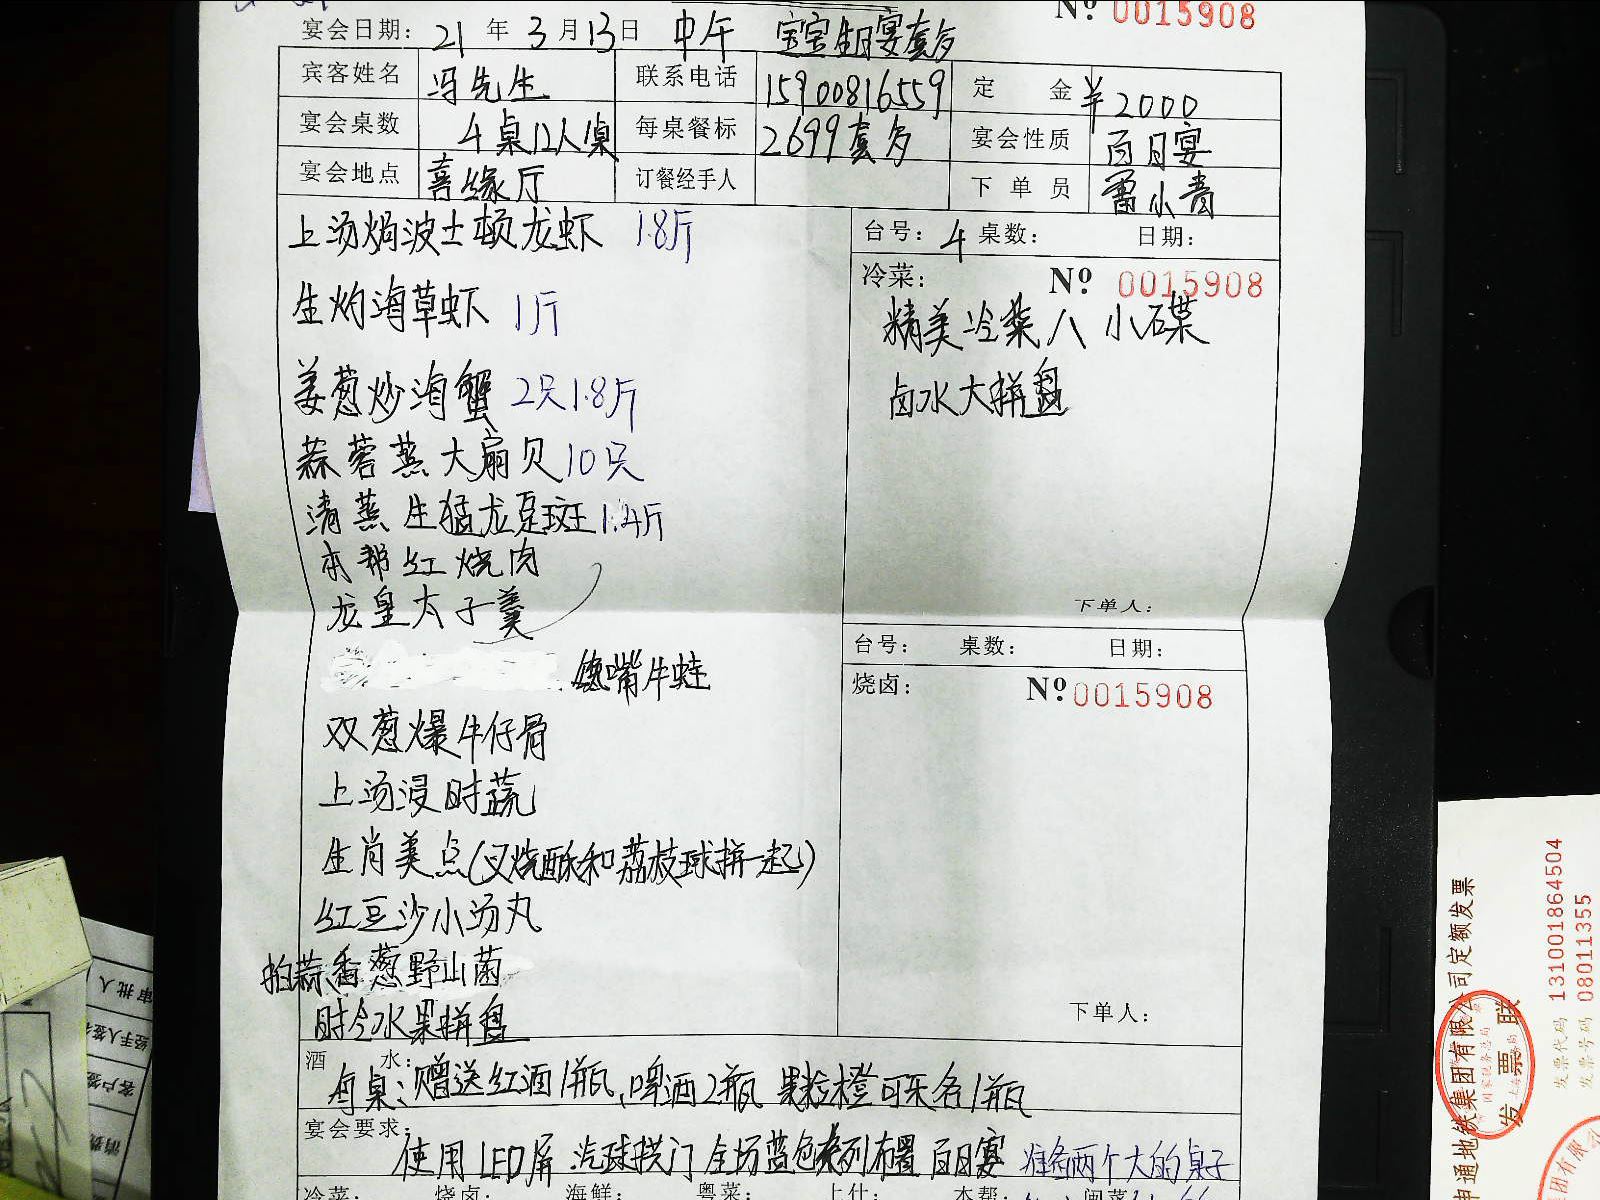 No 0015908
宴会日期: 21 年 3 月 13 日 中午 宝宝生日宴套多
宾客姓名 冯先生 联系电话 15900816559 定金 ¥2000
宴会桌数 4桌12人/桌 每桌餐标 2699套多 宴会性质 百日宴
宴会地点 喜缘厅 订餐经手人 下单员 雷小青
上汤焗波士顿龙虾 1.8斤
生灼海草虾 1斤
姜葱炒海蟹 2只1.8斤
蒜蓉蒸大扇贝10只
清蒸生猛龙趸斑1.4斤
本帮红烧肉
龙皇太子羹
馋嘴牛蛙
双葱爆牛仔骨
上汤浸时蔬
生肖美点(叉烧酥和荔枝球拼一起)
红豆沙小汤丸
拍蒜香葱野山菌
时令水果拼盘
台号: 4 桌数: 日期:
冷菜: No 0015908
精美冷菜八小碟
卤水大拼盘
下单人:
台号: 桌数: 日期:
烧卤: No 0015908
下单人:
酒水:
每桌:赠送红酒1瓶、啤酒2瓶 果粒橙可乐各1瓶
宴会要求:
使用LED屏 汽球拱门 全场蓝色系列布置 百日宴 准备两个大的桌子
冷菜: 烧卤: 海鲜: 粤菜: 上什: 本帮: 闽菜
审批人
经手人签
客户签
消费
申通地铁集团有限公司定额发票
发票联
发票代码 131001864504
发票号码 08011355